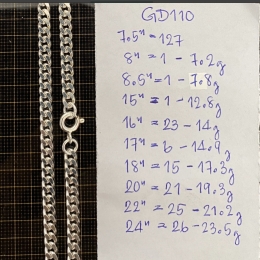 GD110
7.5" = 127
8" = 1 - 7.2g
8.5" = 1 - 7.8g
15" = 1 - 12.8g
16" = 23 - 14g
17" = 6 - 14.9g
18" = 15 - 17.3g
20" = 21 - 19.3g
22" = 25 - 21.2g
24" = 26 - 23.5g